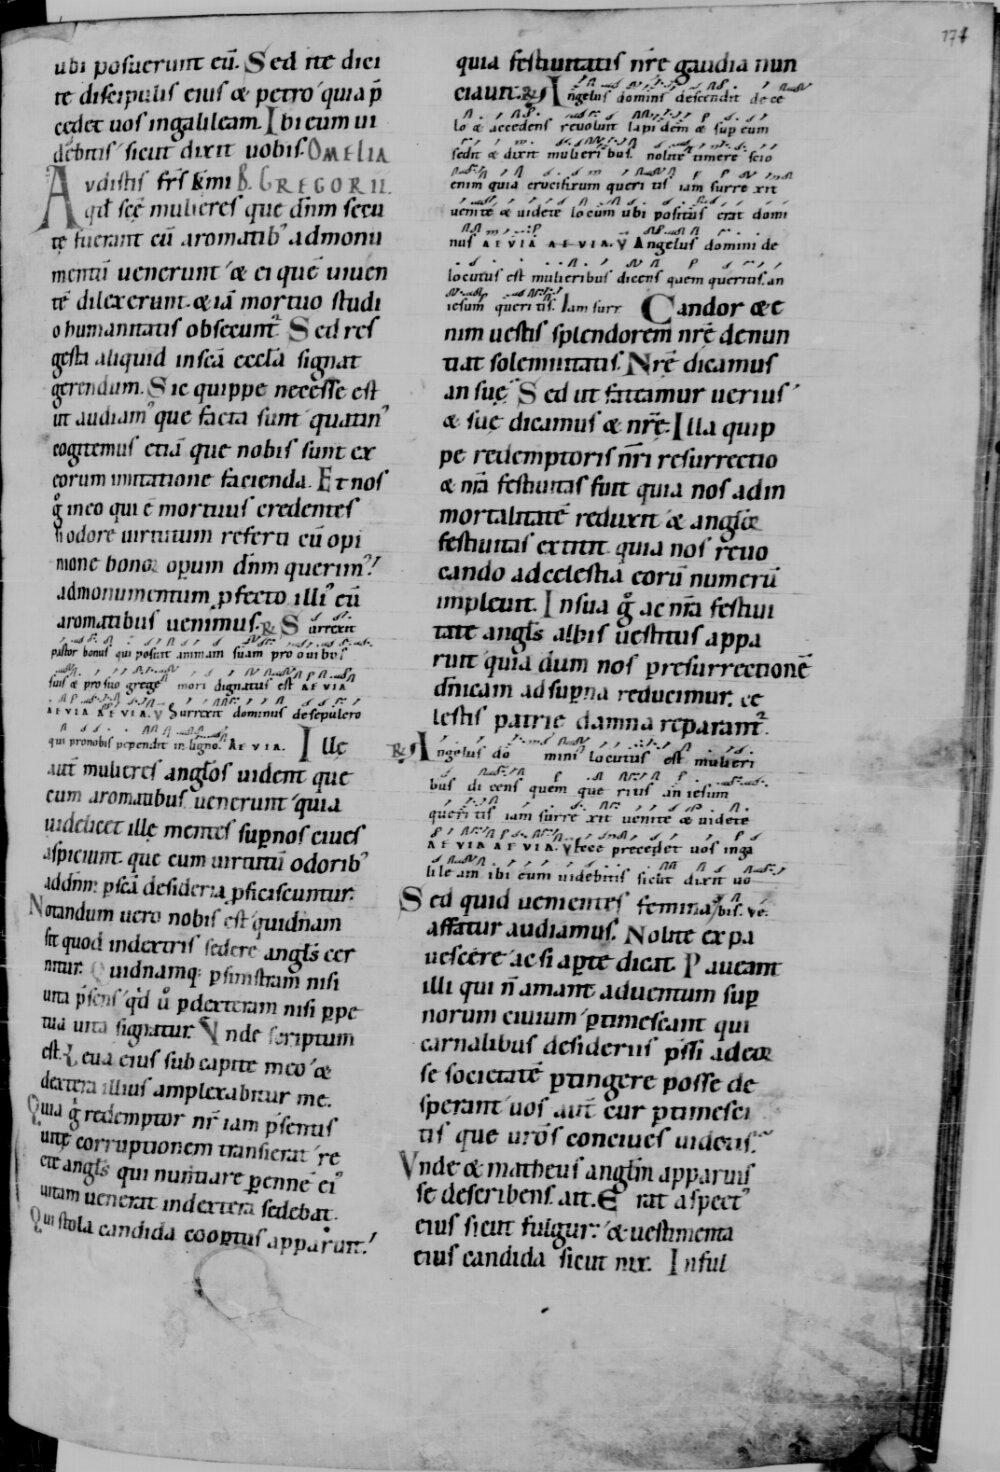 174
ubi posuerunt eū. Sed ite dici
te discipulis eius & petro quia p̄
cedet uos ingalileam. Ibi eum ui
debitis sicut dixit uobis. OMELIA
Audistis frs̄ kmi B. GREGORII.
qd̄ scę mulieres que dn̄m secu
tę fuerant cū aromatib' admonu
mentū uenerunt & ei quē uiuen
tē dilexerunt. & iā mortuo studi
o humanitatis obsecunt. Sed res
gesta aliquid inscā eccla signat
gerendum. Sic quippe necesse est
ut audiam' que facta sunt quatin'
cogitemus etiā que nobis sunt ex
eorum imitatione facienda. Et nos
g° ineo qui ē mortuus credentes
si odore uirtutum referti cū opi
nione bonoꝝ operum dn̄m querim'
admonumentum ꝓfecto illi' cū
aromatibus uenimus. R Surrexit
pastor bonus qui posuit animam suam pro ouibus
suis & pro suo grege mori dignatus est AEVIA
AEVIA AEVIA. V Surrexit dominus desepulcro
qui pronobis pependit in ligno. AEVIA. Illę
aut̄ mulieres anglos uident que
cum aromatibus uenerunt quia
uidelicet illę mentes supnos ciues
aspiciunt. que cum uirtutū odorib'
addn̄m p̄scā desideria ꝓficiscuntur.
Notandum uero nobis est quidnam
sit quod indextris sedere angls̄ cer
nitur. Quidnamq; p̱sinistram nisi
uita p̄sens qd̄ u° p̱dexteram nisi p̱pe
tua uita signatur. Vnde scriptum
est. Leua eius sub capite meo &
dextera illius amplexabitur me.
Quia g° redemptor nr̄ iam p̄sentis
uitę corruptionem transierat re
cte angls̄ qui nuntiare p̱ennē ei'
uitam uenerat indextera sedebat.
Qui stola candida coop̱tus apparuit.
quia festiuitatis nr̄e gaudia nun
ciauit. R Angelus domini descendit de ce
lo & accedens reuoluit lapidem & sup eum
sedit & dixit mulieribus. nolite timere scio
enim quia crucifixum queritis iam surrexit
uenite & uidete locum ubi positus erat domi
nus AEVIA AEVIA. V Angelus domini de
locutus est mulieribus dicens quem queritis. an
iesum queritis. Iam surr Candor & e
nim uestis splendorem nrę denun
tiat solemnitatis. Nrę dicamus
an suę Sed ut fateamur uerius
& suę dicamus & nrę. Illa quip
pe redemptoris nr̄i resurrectio
& nr̄a festiuitas fuit quia nos adin
mortalitatē reduxit & angloꝝ
festiuitas extitit quia nos reuo
cando adcelestia eorū numerū
impleuit. In sua g° ac nr̄a festiui
tate angls̄ albis uestitus appa
ruit quia dum nos p̱resurrectionē
dn̄icam ad sup̱na reducimur. ce
lestis patrie damna reparant'.
R Angelus domini locutus est mulieri
bus dicens quem queritis an iesum
queritis iam surrexit uenite & uidete
AEVIA AEVIA. V Ecce precedet uos inga
lileam ibi eum uidebitis sicut dixit uo
Sed quid uenientes feminas bis. vē.
affatur audiamus. Nolite expa
uescere ac si ap̱te dicat. Paueant
illi qui n̄ amant aduentum sup̱
norum ciuium p̱timescant qui
carnalibus desideriis p̄ssi adeoꝝ
se societatē p̱tingere posse de
sperant uos aut̄ cur p̱timesci
tis que uros̄ conciues uidetis.
Vnde & matheus anglm̄ apparuis
se describens. ait. Erat aspect'
eius sicut fulgur: & uestimenta
eius candida sicut nix. Inful